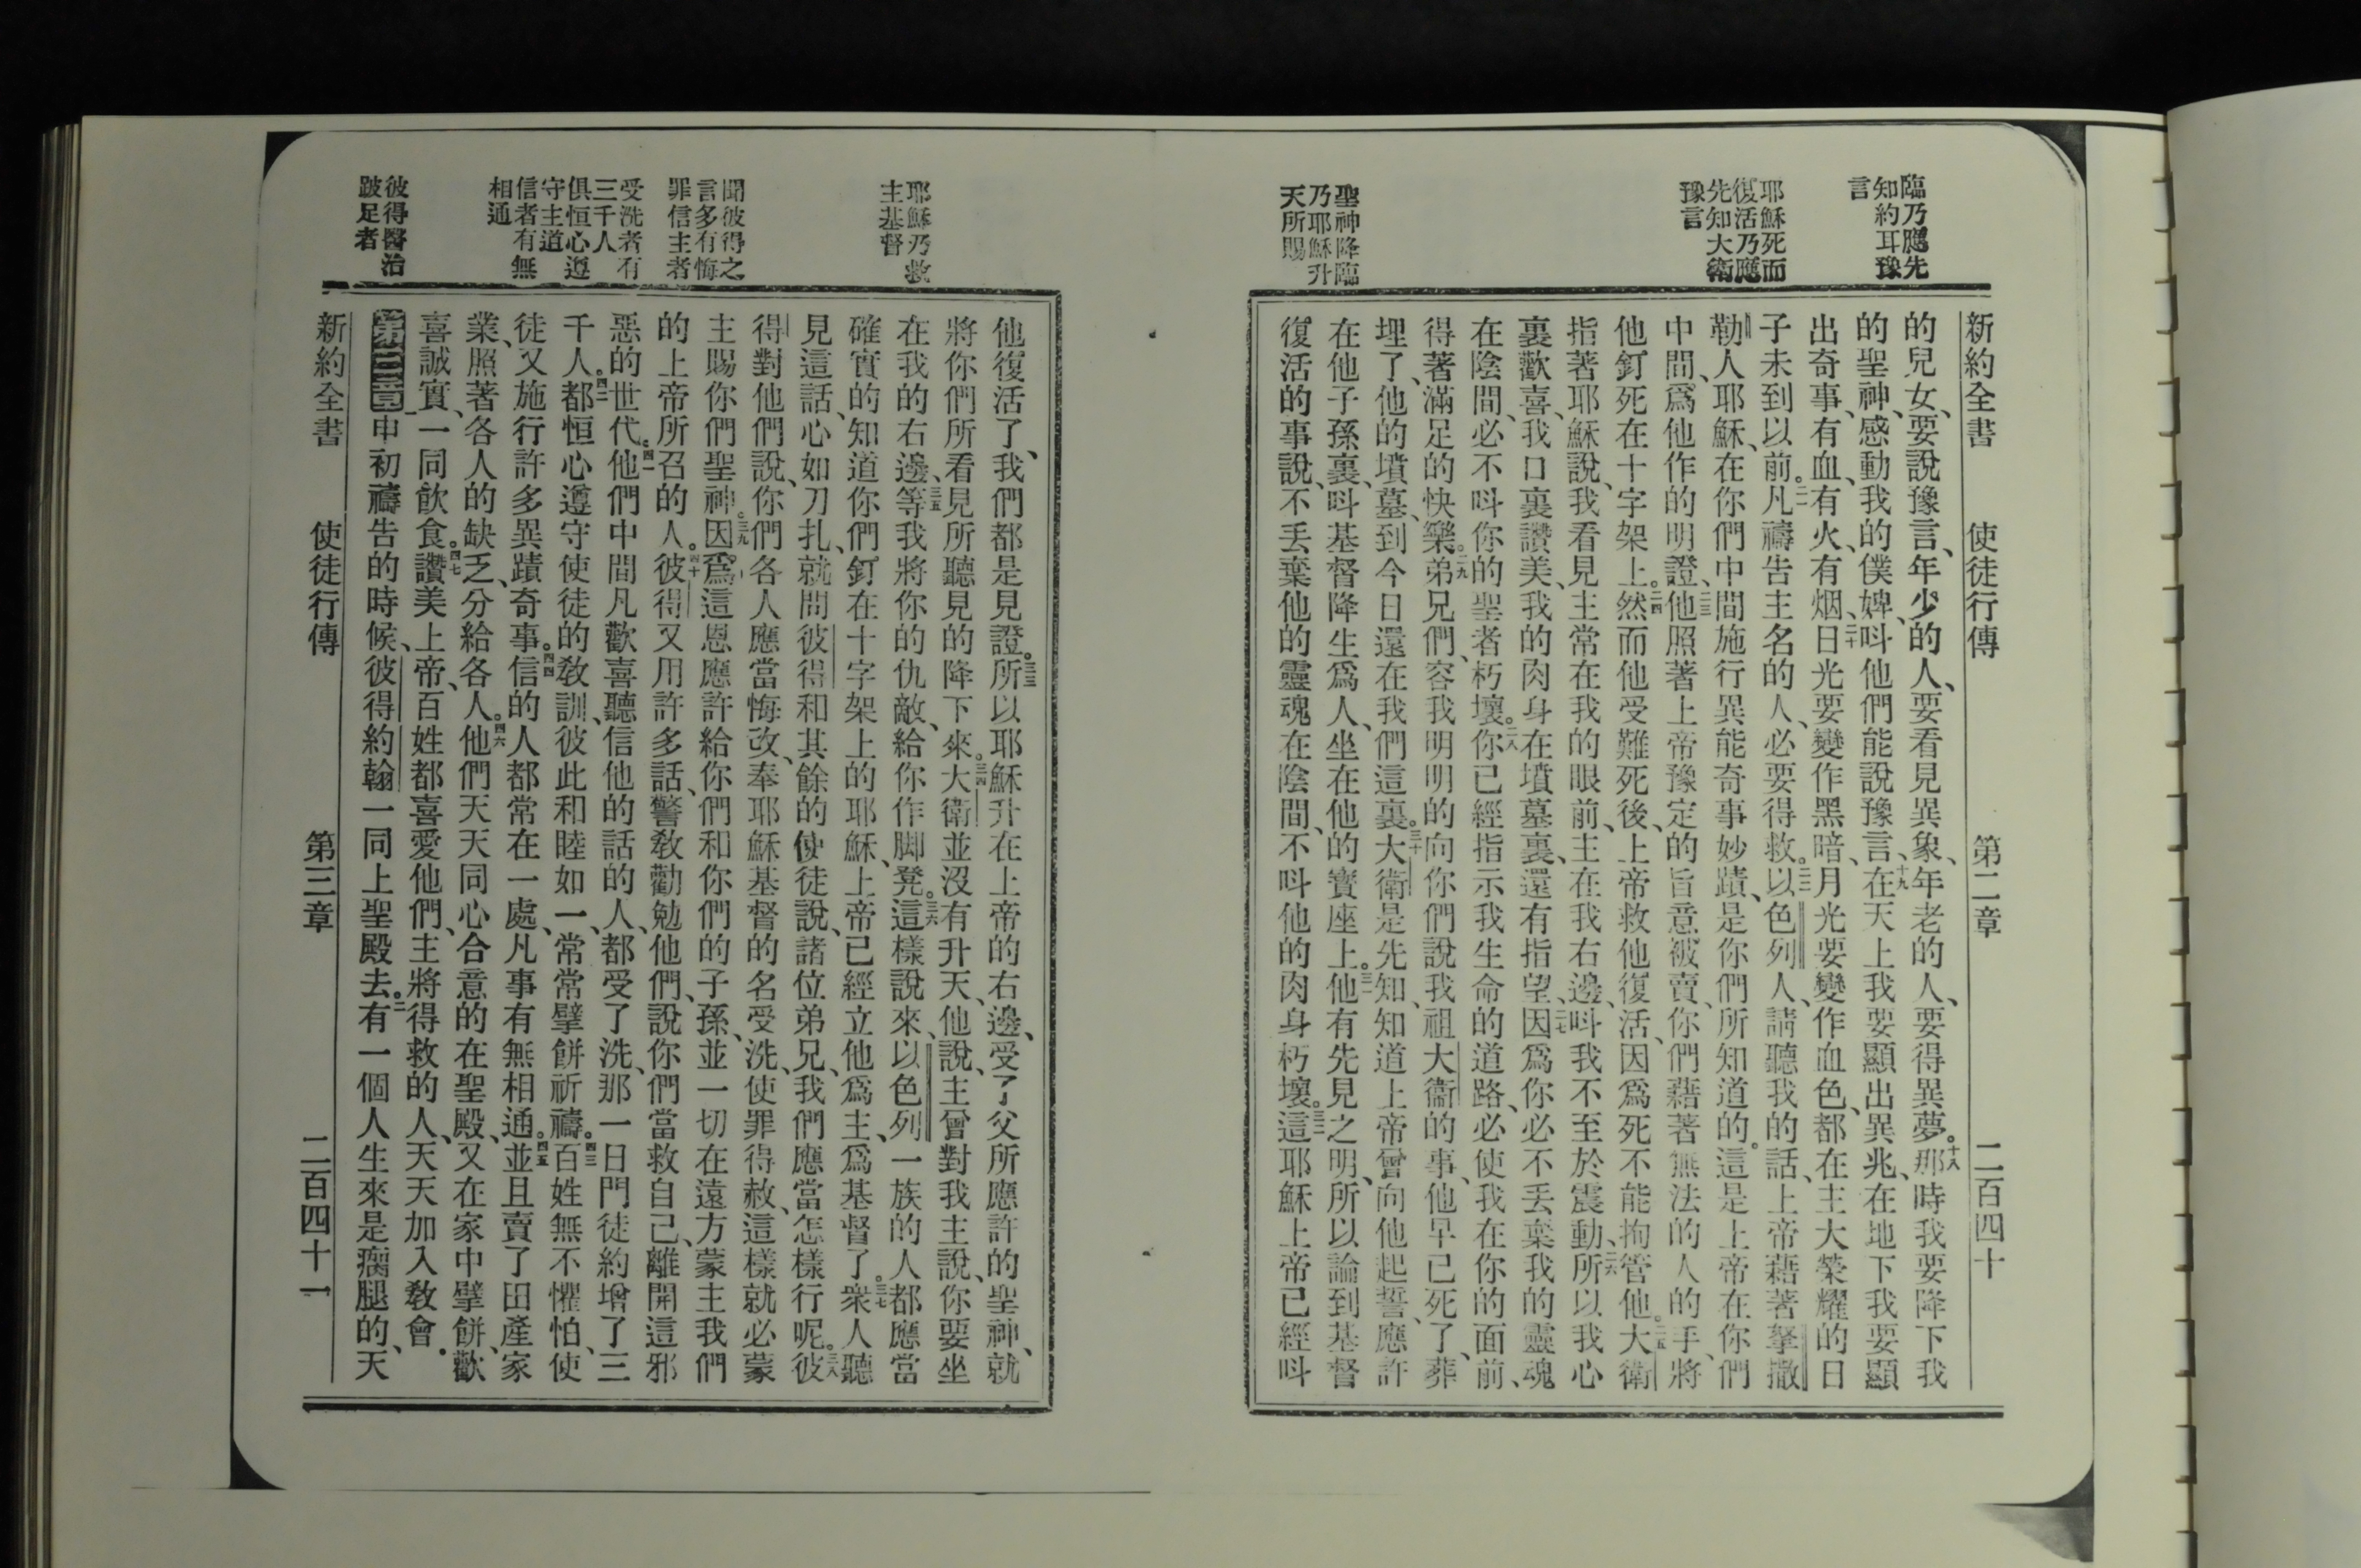 臨乃應先
知約耳豫
言
耶穌死而
復活乃應
先知大衛
豫言
聖神降臨
乃耶穌升
天所賜
新約全書 使徒行傳 第二章 二百四十
的兒女、要說豫言、年少的人、要看見異象、年老的人、要得異夢。十八那時我要降下我
的聖神、感動我的僕婢、呌他們能說豫言、十九在天上我要顯出異兆、在地下我要顯
出奇事、有血、有火、有烟、二十日光要變作黑暗、月光要變作血色、都在主大榮耀的日
子未到以前。二一凡禱告主名的人、必要得救。二二以色列人、請聽我的話、上帝藉著拏撒
勒人耶穌、在你們中間施行異能奇事妙蹟、是你們所知道的。這是上帝在你們
中間、爲他作的明證、二三他照著上帝豫定的旨意、被賣、你們藉著無法的人的手、將
他釘死在十字架上。二四然而他受難死後、上帝救他復活、因爲死不能拘管他。二五大衛
指著耶穌說、我看見主常在我的眼前、主在我右邊、呌我不至於震動、二六所以我心
裏歡喜、我口裏讚美、我的肉身在墳墓裏、還有指望、二七因爲你必不丟棄我的靈魂
在陰間、必不呌你的聖者朽壞。二八你已經指示我生命的道路、必使我在你的面前、
得著滿足的快樂。二九弟兄們、容我明明的向你們說我祖大衛的事、他早已死了、葬
埋了、他的墳墓到今日還在我們這裏。三十大衛是先知、知道上帝曾向他起誓、應許
在他子孫裏、呌基督降生爲人、坐在他的寶座上。三一他有先見之明、所以論到基督
復活的事說、不丟棄他的靈魂在陰間、不呌他的肉身朽壞。三二這耶穌上帝已經呌
耶穌乃救
主基督
聞彼得之
言多有悔
罪信主者
受洗者有
三千人
俱恒心遵
守主道
信者有無
相通
彼得醫治
跛足者
他復活了、我們都是見證。三三所以耶穌升在上帝的右邊、受了父所應許的聖神、就
將你們所看見所聽見的降下來。三四大衛並沒有升天、他說、主曾對我主說、你要坐
在我的右邊、三五等我將你的仇敵、給你作脚凳。三六這樣說來、以色列一族的人都應當
確實的知道你們釘在十字架上的耶穌、上帝已經立他爲主、爲基督了。三七衆人聽
見這話、心如刀扎、就問彼得和其餘的使徒說、諸位弟兄、我們應當怎樣行呢。三八彼
得對他們說、你們各人應當悔改、奉耶穌基督的名受洗、使罪得赦、這樣就必蒙
主賜你們聖神。三九因爲這恩應許給你們和你們的子孫、並一切在遠方蒙主我們
的上帝所召的人。四十彼得又用許多話、警敎勸勉他們、說你們當救自己、離開這邪
惡的世代。四一他們中間凡歡喜聽信他的話的人、都受了洗、那一日門徒約增了三
千人。四二都恒心遵守使徒的敎訓、彼此和睦如一、常常擘餅祈禱。四三百姓無不懼怕、使
徒又施行許多異蹟奇事。四四信的人都常在一處、凡事有無相通。四五並且賣了田產家
業、照著各人的缺乏、分給各人。四六他們天天同心合意的在聖殿、又在家中擘餅、歡
喜誠實、一同飲食。四七讚美上帝、百姓都喜愛他們、主將得救的人、天天加入敎會。
第三章一申初禱告的時候、彼得約翰一同上聖殿去。二有一個人生來是瘸腿的、天
新約全書 使徒行傳 第三章 二百四十一